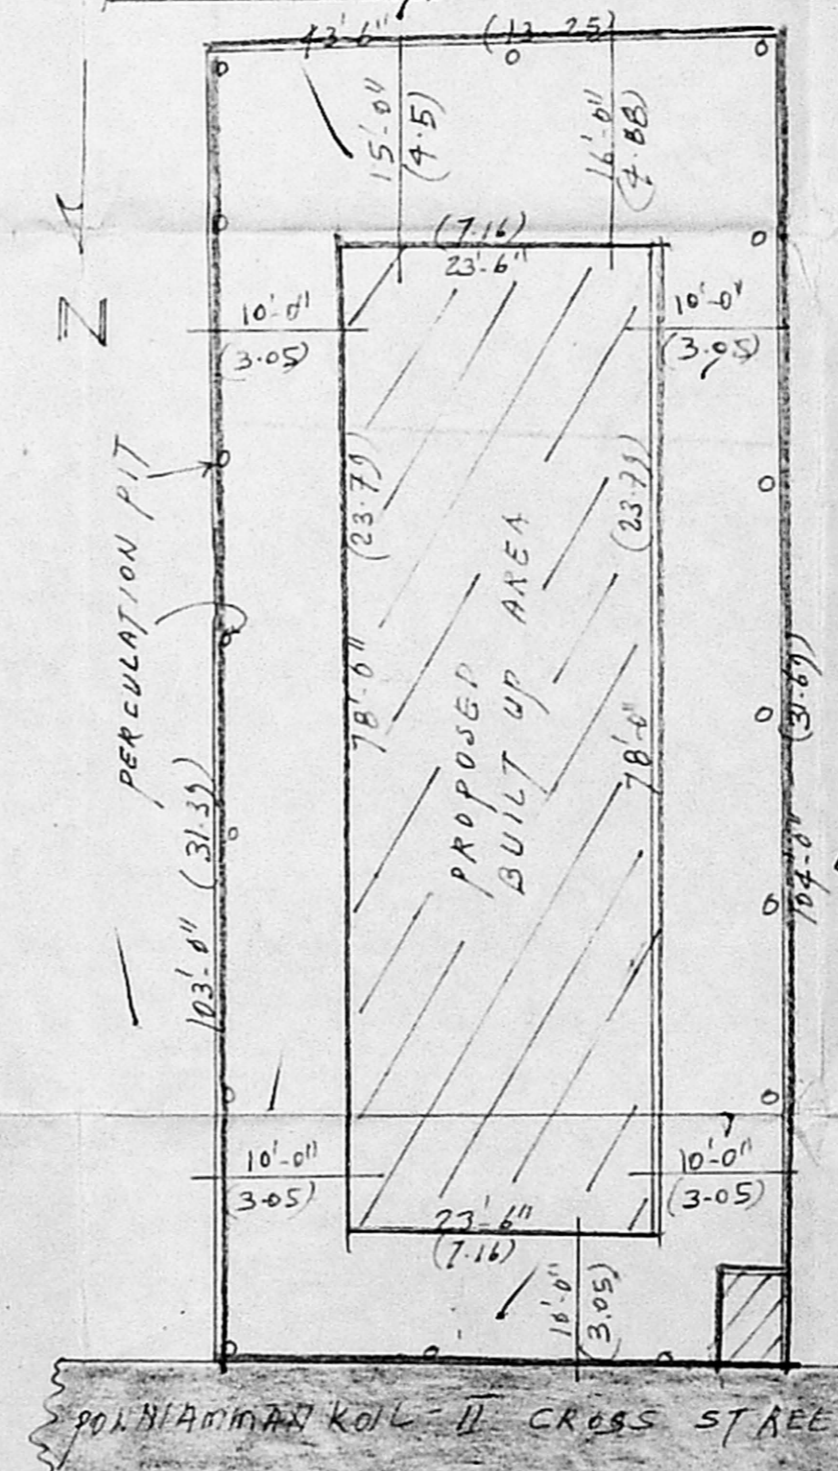 43'-6" (13-25)
15'-0"
(4.5)
16'-0"
(4.88)
(7.16)
23'-6"
10'-0"
(3.05)
10'-0"
(3.05)
N
PERCULATION PIT
(23.79)
78'-0"
(23.79)
78'-0"
PROPOSED
BUILT UP AREA
103'-0" (31.39)
104-0" (31.69)
10'-0"
(3.05)
10'-0"
(3.05)
23'-6"
(7.16)
10'-0"
(3.05)
KOIL-II CROSS STREE